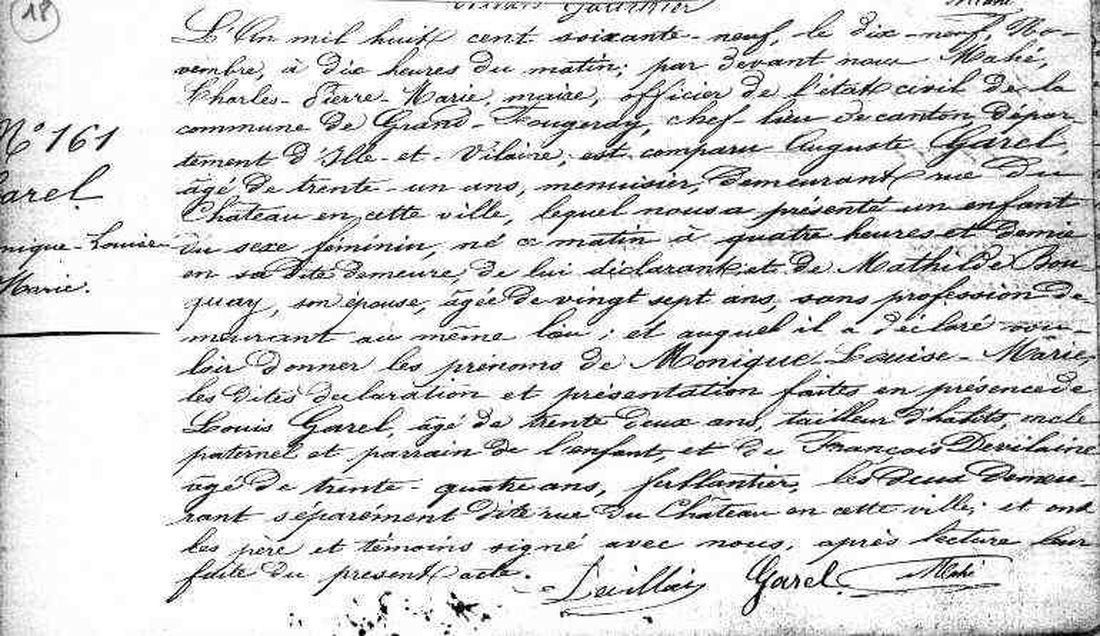 18
Mahé
L'An mil huit cent soixante-neuf, le dix-neuf, No-
vembre, à dix heures du matin; par devant nous Mahé,
Charles-Pierre-Marie, maire, officier de l'état civil de la
commune de Grand-Fougeray, chef-lieu de canton, dépar-
tement d'Ille-et-Vilaine, est comparu Auguste Garel,
âgé de trente-un ans, menuisier, demeurant rue du
Château en cette ville, lequel nous a présenté un enfant
du sexe féminin, né ce matin à quatre heures et demie
en sa dite demeure, de lui déclarant et de Mathilde Bou-
quay, son épouse, âgée de vingt sept ans, sans profession de-
meurant au même lieu; et auquel il a déclaré vou-
loir donner les prénoms de Monique-Louise-Marie,
les dites déclaration et présentation faites en présence de
Louis Garel, âgé de trente deux ans, tailleur d'habits, oncle
paternel et parrain de l'enfant, et de François Devilaine
âgé de trente-quatre ans, ferblantier, les deux demeu-
rant séparément dite rue du Château en cette ville; et ont
les père et témoins signé avec nous, après lecture leur
faite du présent acte.
Garel Mahé
No 161
arel
nique-Louise-
Marie.